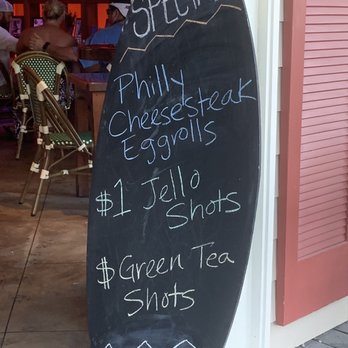 Philly
Cheesesteak
Eggrolls
$1 Jello
Shots
$Green Tea
Shots